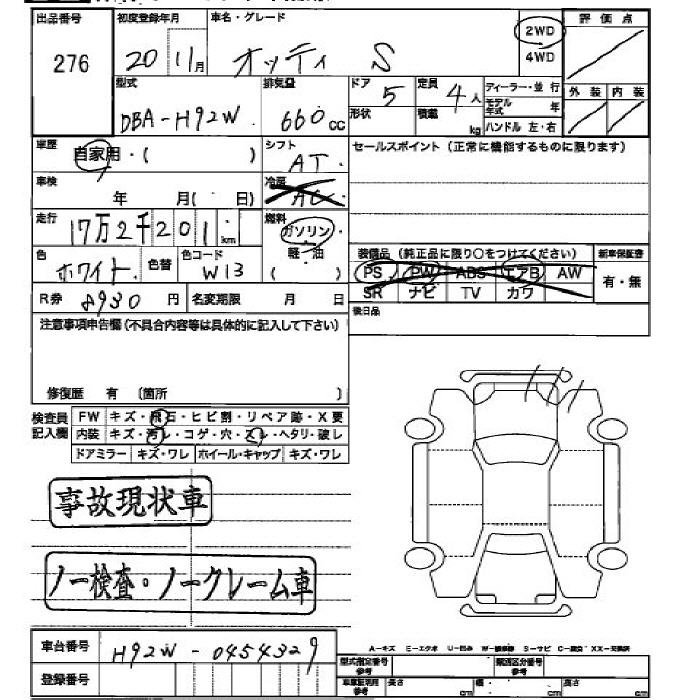 出品番号 初度登録年月 車名・グレード 評価点
276 20 11月 オッティ S 2WD
4WD
型式 排気量 ドア 5 定員 4人 ディーラー・並行 外装 内装
DBA-H92W 660cc 形状 積載 kg モデル年式 年
ハンドル 左・右
車歴 自家用・( ) シフト AT セールスポイント(正常に機能するものに限ります)
車検 年 月( 日) 冷房 AC
走行 17万2千201 km 燃料 ガソリン・軽・油 ( )
色 ホワイト 色替 色コード W13 装備品(純正品に限り○をつけてください) 新車保証書
PS PW ABS エアB AW 有・無
R券 8930円 名変期限 月 日 SR ナビ TV カワ
注意事項申告欄(不具合内容等は具体的に記入して下さい) 後日品
修復歴 有 〔箇所 〕
検査員記入欄 FW キズ・飛石・ヒビ割・リペア跡・X要
内装 キズ・汚レ・コゲ・穴・スレ・ヘタリ・破レ
ドアミラー キズ・ワレ ホイール・キャップ キズ・ワレ
事故現状車
ノー検査・ノークレーム車
A-キズ E-エクボ U-凹み W-補修跡 S-サビ C-腐食 XX-交換済
車台番号 H92W-0454329 型式指定番号 参考 類別区分番号 参考
登録番号 車庫証明用 参考 長さ cm 幅 cm 高さ cm